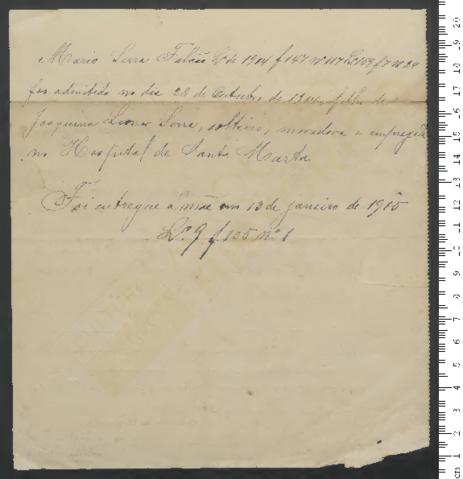 Mario Serra Falcão Lº de 1904 f 147 nº 117
foi admittido no dia 28 de Outubro de 1904, filho de
Joaquina Serra, solteira, moradora e empregada
no Hospital de Santa Marta
Foi entregue á mãe em 13 de janeiro de 1915
Lº 9 f 125 nº 1